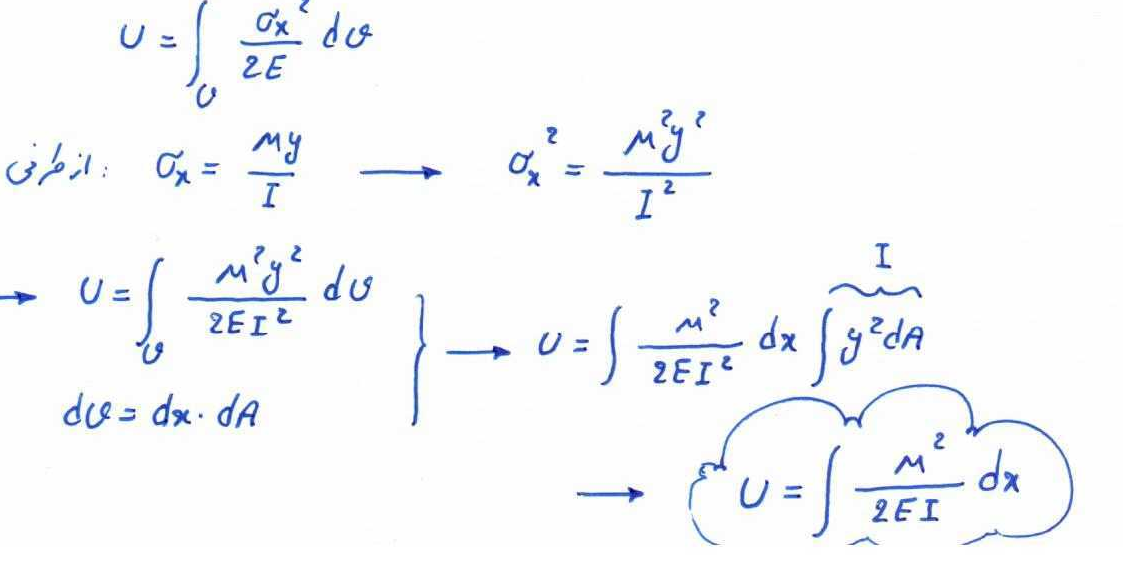 U = ∫_υ σx² / 2E dυ
از طرفی: σx = My / I → σx² = M²y² / I²
→ U = ∫_υ M²y² / 2EI² dυ
dυ = dx · dA
} → U = ∫ M² / 2EI² dx ∫ y²dA
I
→ U = ∫ M² / 2EI dx